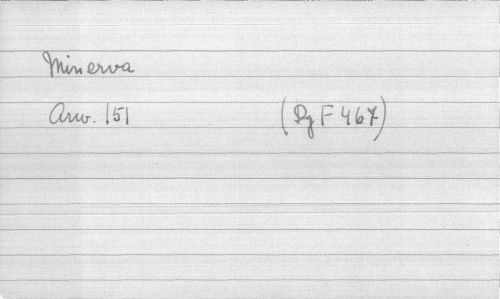 Minerva
Arw. 151 (Dg F 467)